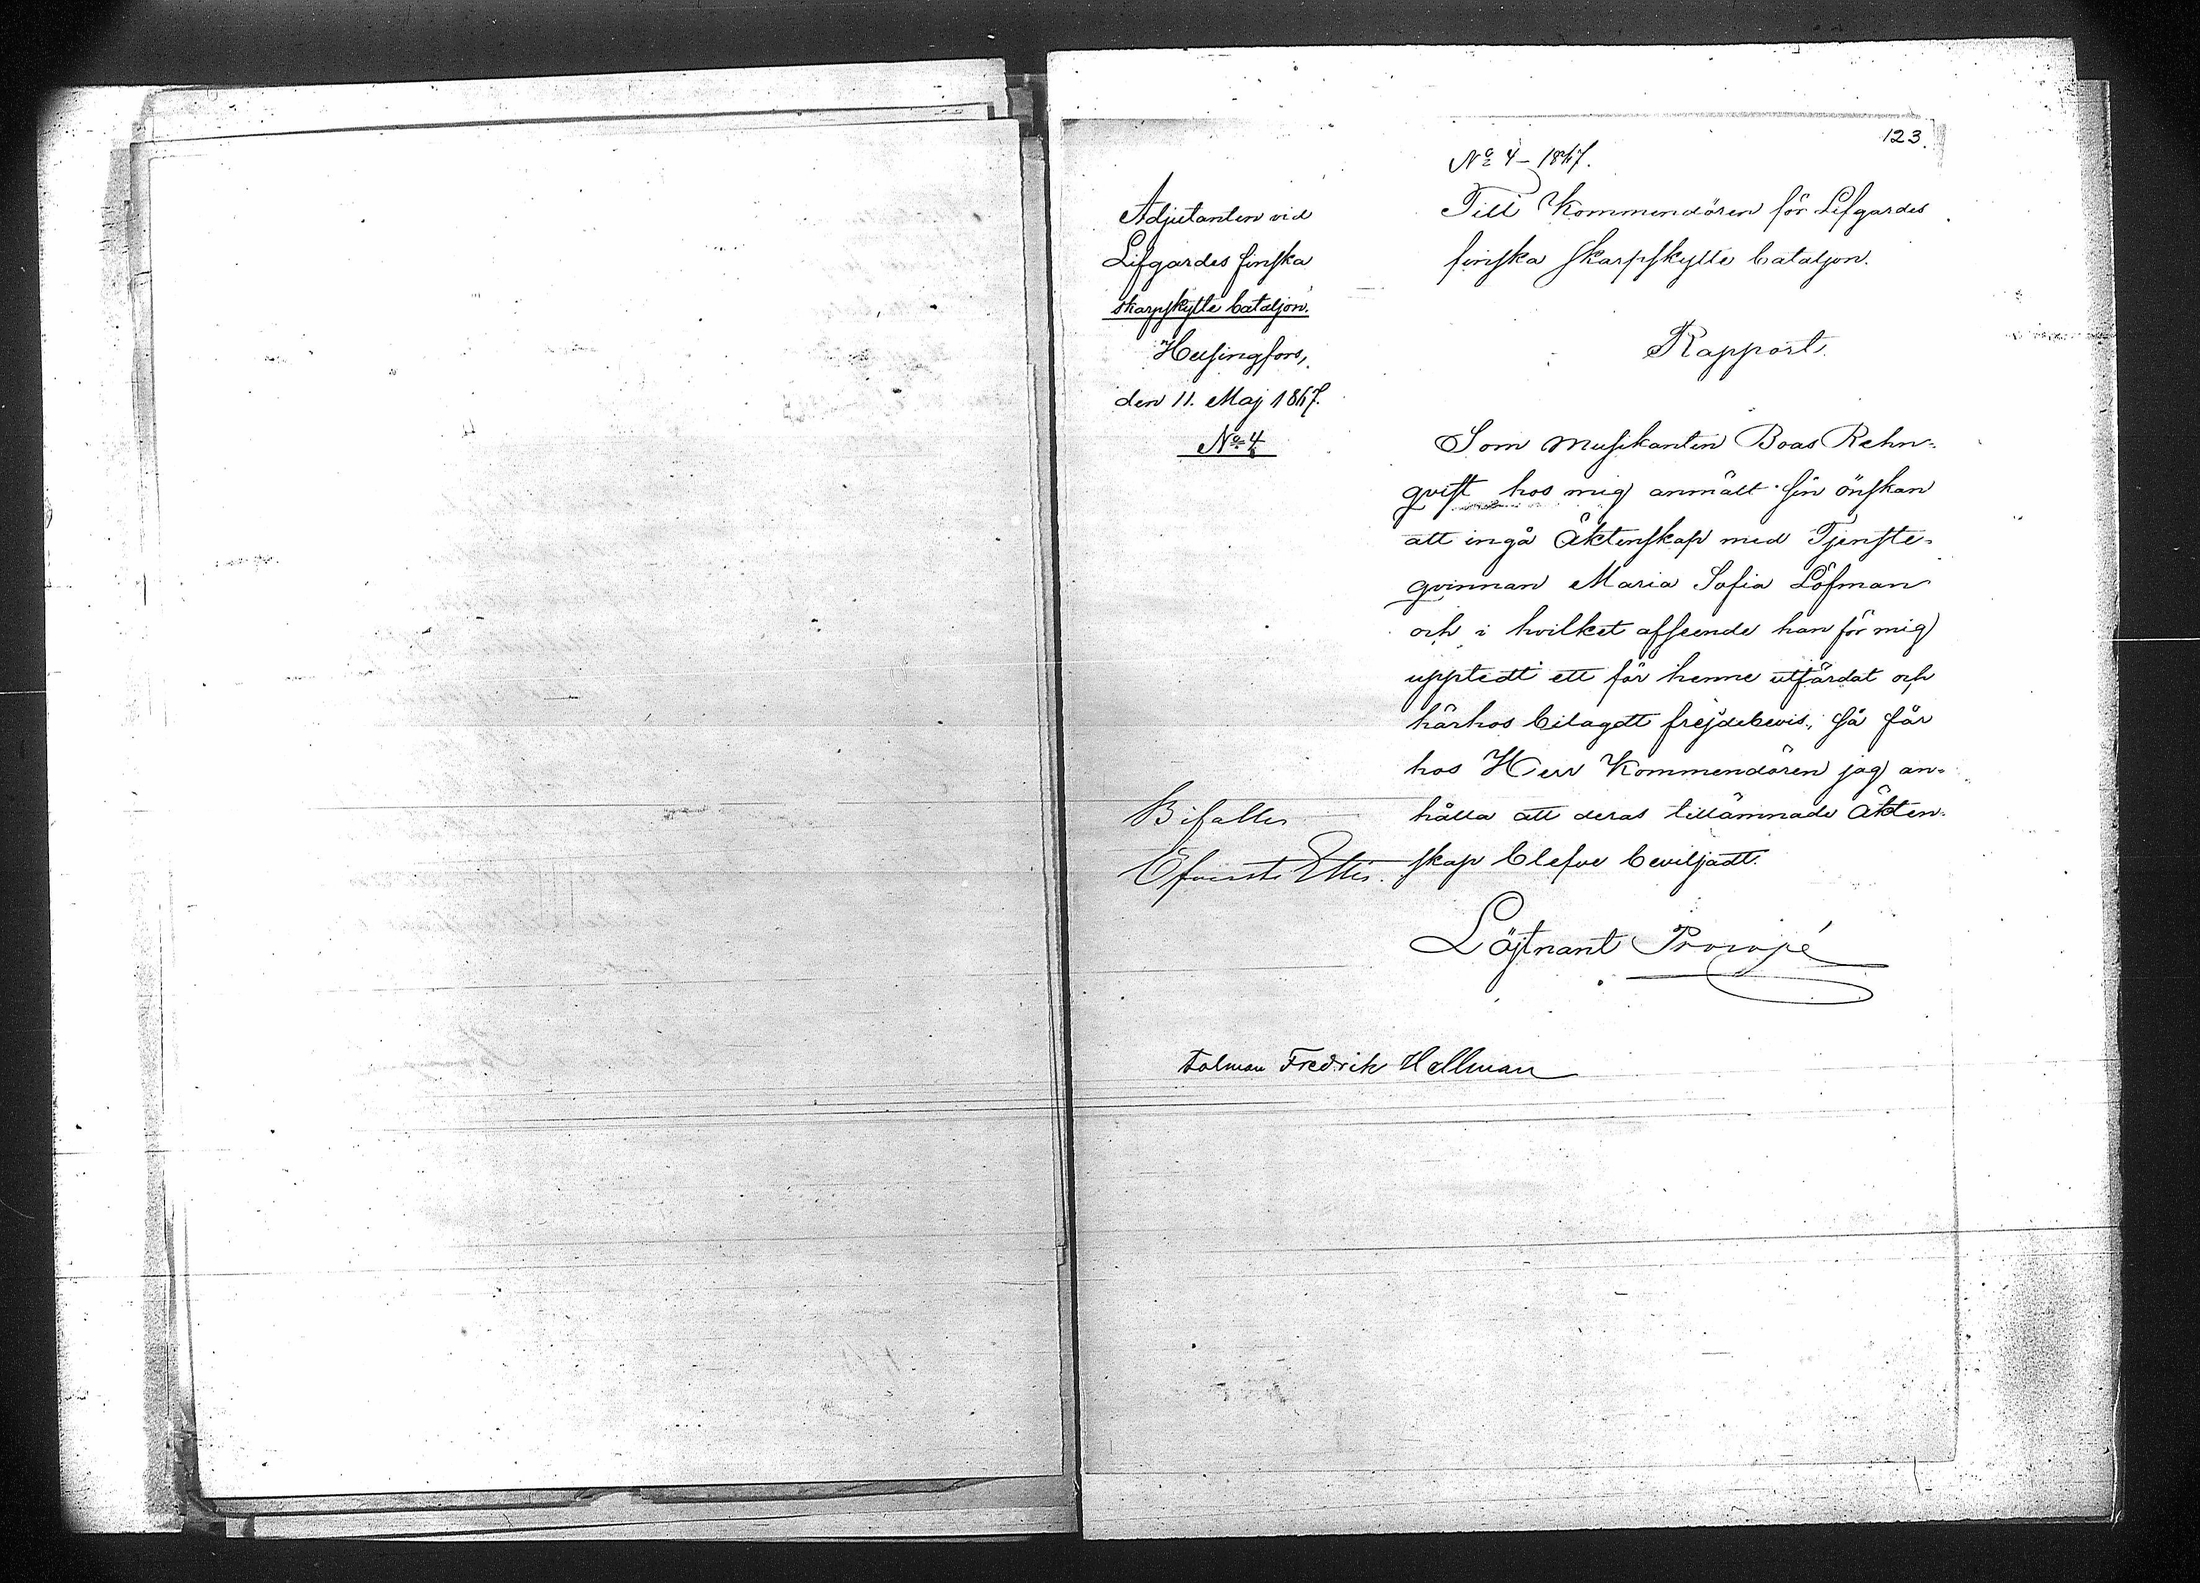 123.
No 4 – 1867.
Till Kommendören för Lifgardes
finska skarpskytte bataljon.
Adjutanten vid
Lifgardes finska
skarpskytte bataljon.
Helsingfors,
den 11. Maj 1867.
No 4
Rapport.
Som Musikanten Boas Rehn-
qvist hos mig anmält sin önskan
att ingå Äktenskap med Tjenste-
qvinnan Maria Sofia Löfman
och i hvilket afseende han för mig
upptedt ett för henne utfärdat och
härhos bilagdt frejdebevis, så får
hos Herr Kommendören jag an-
hålla att deras tillämnade Äkten-
skap blefve beviljadt.
Bifalles
Öfverste
Löjtnant Procopé
talman Fredrik Hellman